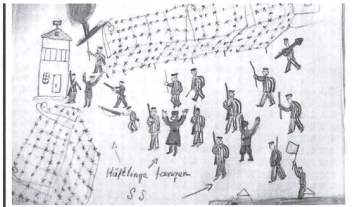 Häftlinge fangen
S S